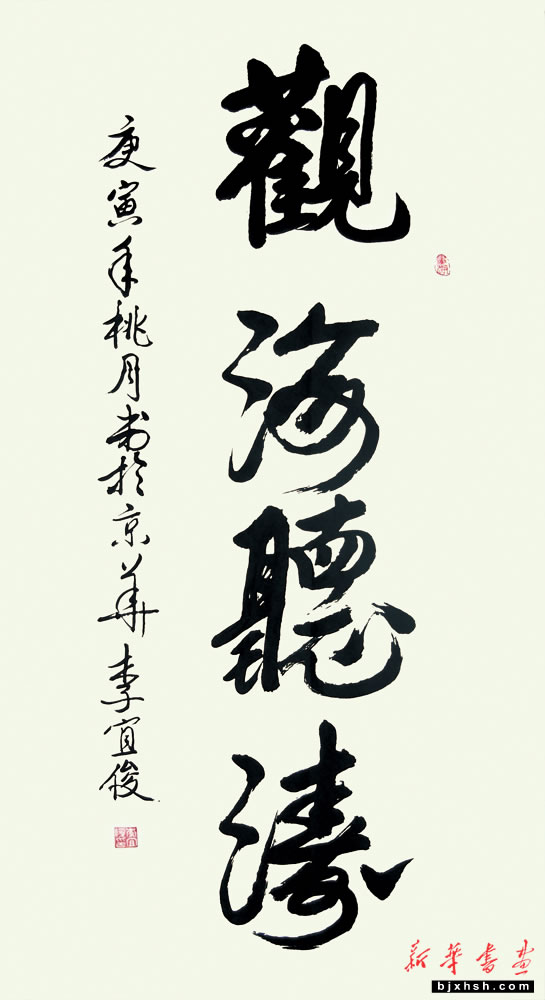 觀海聽濤
庚寅年桃月書於京華李宜俊
新華書畫
bjxhsh.com